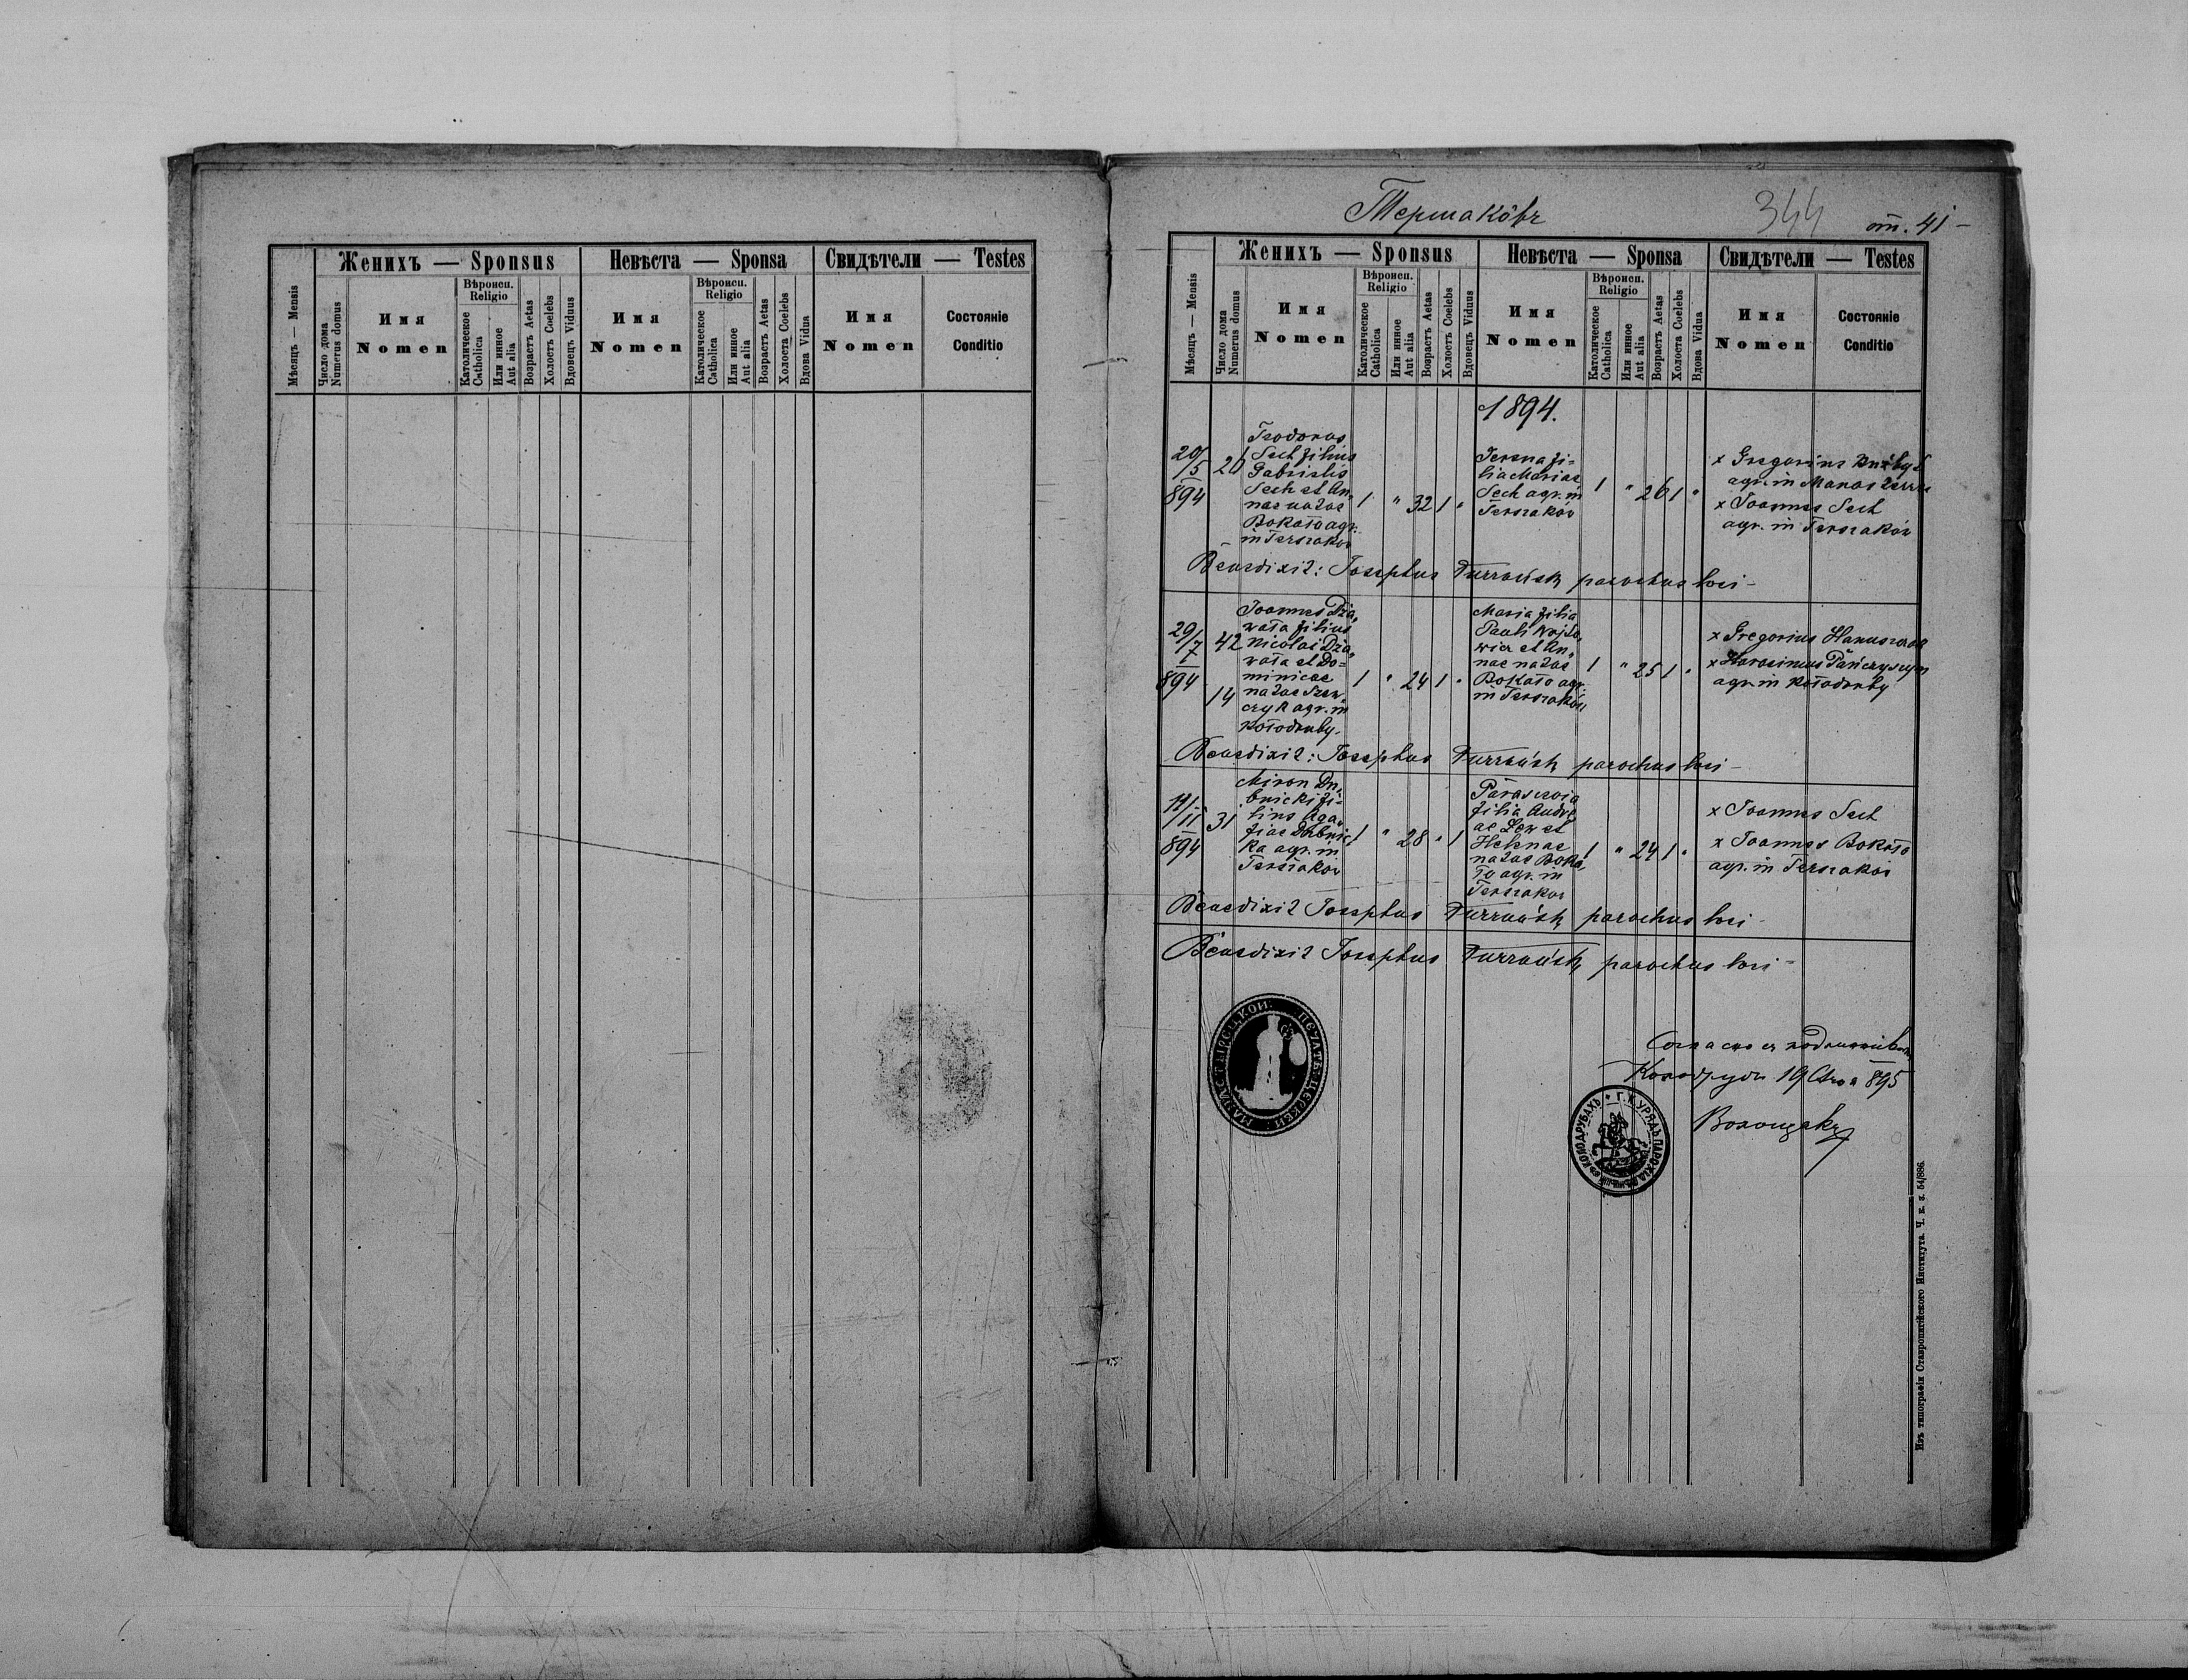 Мѣсяцъ — Mensis
Число дома
Numerus domus
Женихъ — Sponsus
Имя
Nomen
Вѣроисп.
Religio
Католическое
Catholica
Или инное
Aut alia
Возрастъ Aetas
Холостъ Coelebs
Вдовецъ Viduus
Невѣста — Sponsa
Имя
Nomen
Вѣроисп.
Religio
Католическое
Catholica
Или инное
Aut alia
Возрастъ Aetas
Холоста Coelebs
Вдова Vidua
Свидѣтели — Testes
Имя
Nomen
Состояніе
Conditio
Тершакôвъ
344
ст. 41
Мѣсяцъ — Mensis
Число дома
Numerus domus
Женихъ — Sponsus
Имя
Nomen
Вѣроисп.
Religio
Католическое
Catholica
Или инное
Aut alia
Возрастъ Aetas
Холостъ Coelebs
Вдовецъ Viduus
Невѣста — Sponsa
Имя
Nomen
Вѣроисп.
Religio
Католическое
Catholica
Или инное
Aut alia
Возрастъ Aetas
Холоста Coelebs
Вдова Vidua
Свидѣтели — Testes
Имя
Nomen
Состояніе
Conditio
1894.
20/5
894
20
Teodorus
Sech filius
Gabrielis
Sech et An,
nae natae
Bokało agr.
in Terszakow
1 " 32 1 "
fi=
lia Mariae
Sech agr. in
Terszakow
1 " 26 1 "
x Gregorius
agr. in
x Joannes Sech
agr. in Terszakow
Benedixit: Josephus parochus loci -
29/7
894
42
14
Joannes Dzia,
wała filius
Nicolai Dzia,
wała et Do=
minicae
natae Szew,
czyk agr. in
Kołodruby.
1 " 24 1 "
Maria filia
Pauli Wojto,
wicz et An,
nae natae
Bokało agr.
in Terszakow
1 " 25 1 "
x Gregorius
x Harasimus Pańczyszyn
agr. in Kołodruby
Benedixit: Josephus parochus loci -
11/11
894
31
Miron Du,
bnicki fi=
lius Aga,
fiae Dubnic,
ka agr. in
Terszakow
1 " 28 " 1
Parascewia
filia Andre
ae Lew et
Helenae
natae Boka,
ło agr. in
Terszakow
1 " 24 1 "
x Joannes Sech
x Joannes Bokało
agr. in Terszakow
Benedixit Josephus parochus loci -
Benedixit Josephus parochus loci -
ПЕЧАТЬ ЦЕРКВИ МАНАСТЫРЕЦКОИ
Согласно съ
19 895
Г. К. УРЯДЪ ПАРОХІАЛЬНЫЙ въ КОЛОДРУБАХЪ
Изъ типографіи Ставропигійского Института. Ч. к. з. 54/886.